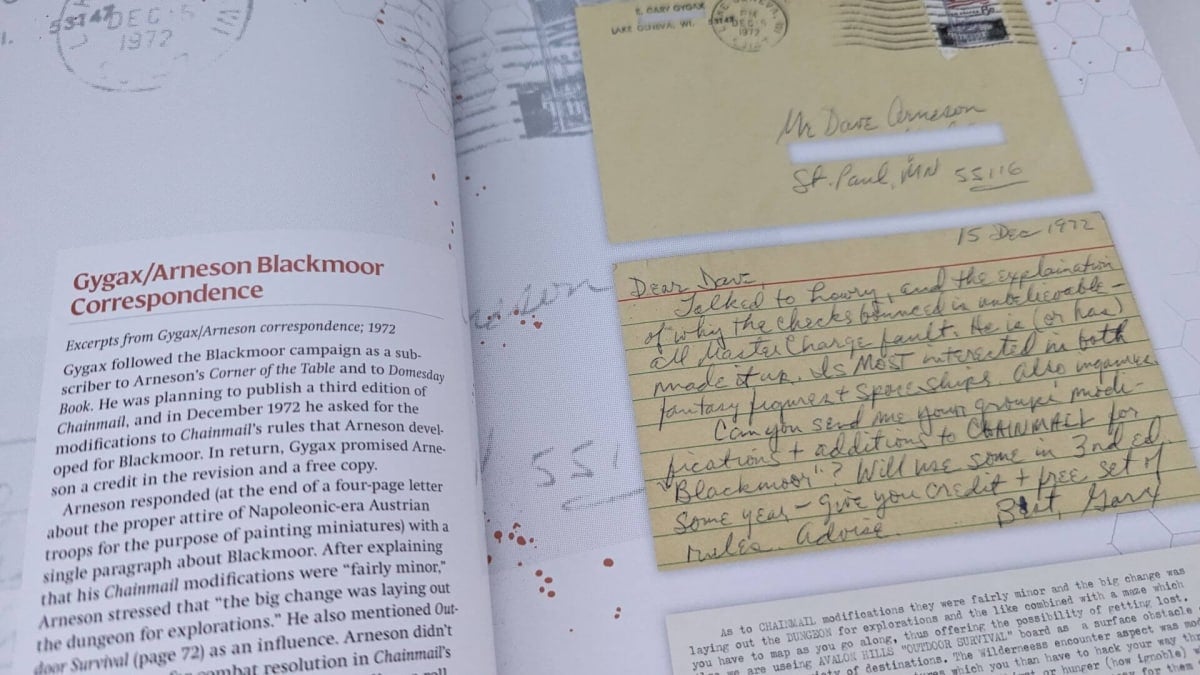 53147 DEC·5
1972
Gygax/Arneson Blackmoor
Correspondence
Excerpts from Gygax/Arneson correspondence; 1972
Gygax followed the Blackmoor campaign as a sub-
scriber to Arneson's Corner of the Table and to Domesday
Book. He was planning to publish a third edition of
Chainmail, and in December 1972 he asked for the
modifications to Chainmail's rules that Arneson devel-
oped for Blackmoor. In return, Gygax promised Arne-
son a credit in the revision and a free copy.
Arneson responded (at the end of a four-page letter
about the proper attire of Napoleonic-era Austrian
troops for the purpose of painting miniatures) with a
single paragraph about Blackmoor. After explaining
that his Chainmail modifications were "fairly minor,"
Arneson stressed that "the big change was laying out
the dungeon for explorations." He also mentioned Out-
door Survival (page 72) as an influence. Arneson didn't
combat resolution in Chainmail's
551
E. GARY GYGAX
LAKE GENEVA, WI.
53147
PM
DEC·5
1972
Mr Dave Arneson
St. Paul, MN 55116
15 Dec 1972
Dear Dave,
Talked to Lowry, and the explaination
of why the checks bounced is unbelievable –
all Master Charge fault. He is (or has)
made it up. Is MOST interested in both
fantasy figures + spaceships. Also
Can you send me your groups' modi-
fications + additions to CHAINMAIL for
"Blackmoor"? Will use some in 3nd ed.
some year – give you credit + free set of
rules. Advise.
Best, Gary
As to CHAINMAIL modifications they were fairly minor and the big change was
laying out the DUNGEON for explorations and the like combined with a maze which
you have to map as you go along, thus offering the possibility of getting lost.
we are useing AVALON HILLS "OUTDOOR SURVIVAL" board as a surface obstacle
of destinations. The Wilderneess encounter aspect was
which you than have to hack your way
or hunger (how ignoble)
for them